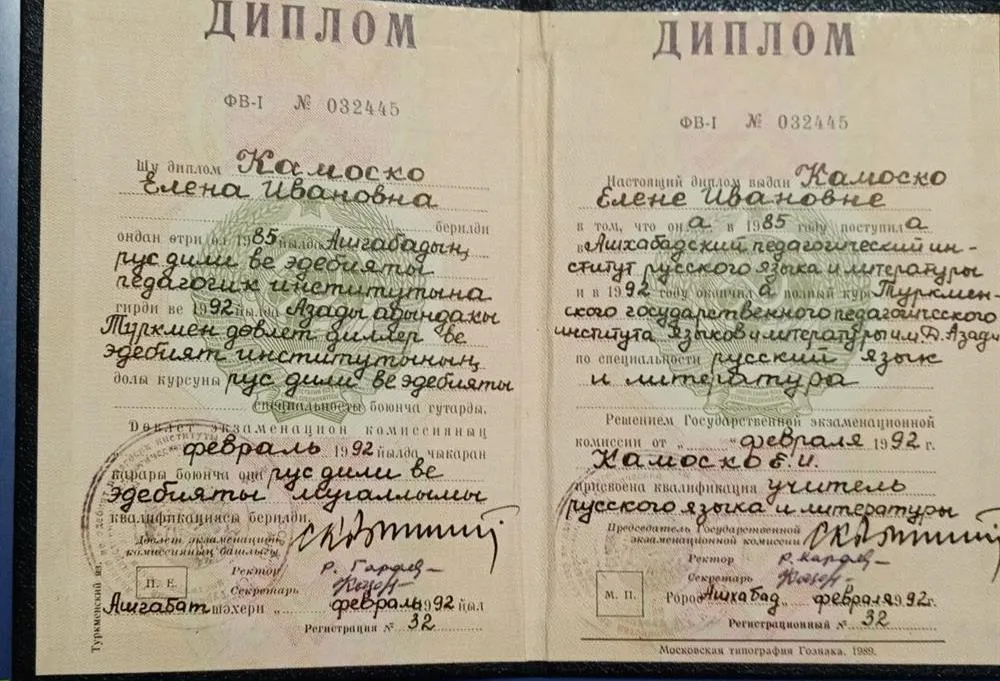 ДИПЛОМ
ФВ-I № 032445
Шу диплом Камоско
Елена Ивановна
берилди
ондан өтри ол 1985 йылда Ашгабадың
рус дили ве эдебияты
педагогик институтына
гирди ве 1992 йылда Азады адындакы
Түркмен дөвлет диллер ве
эдебият институтының
долы курсуны рус дили ве эдебияты
специальность боюнча гутарды.
Дөвлет экзаменацион комиссияның
февраль 1992 йылда чыкаран
карары боюнча оңа рус дили ве
эдебияты мугаллымы
квалификациясы берилди.
Дөвлет экзаменацион
комиссияның башлыгы
Ректор
Секретарь
П. Е.
Ашгабат шәхери „ февраль 1992 йыл
Регистрация № 32
Туркменский яз.
ДИПЛОМ
ФВ-I № 032445
Настоящий диплом выдан Камоско
Елене Ивановне
в том, что она в 1985 году поступила
в Ашхабадский педагогический ин-
ститут русского языка и литературы
и в 1992 году окончила полный курс Туркмен-
ского государственного педагогического
института языков и литературы им. Д. Азади
по специальности русский язык
и литература
Решением Государственной экзаменационной
комиссии от „ “ февраля 1992 г.
Камоско Е. И.
присвоена квалификация учитель
русского языка и литературы
Председатель Государственной
экзаменационной комиссии
Ректор
Секретарь
М. П.
Город Ашхабад „ февраля 1992г.
Регистрационный № 32
Московская типография Гознака. 1989.